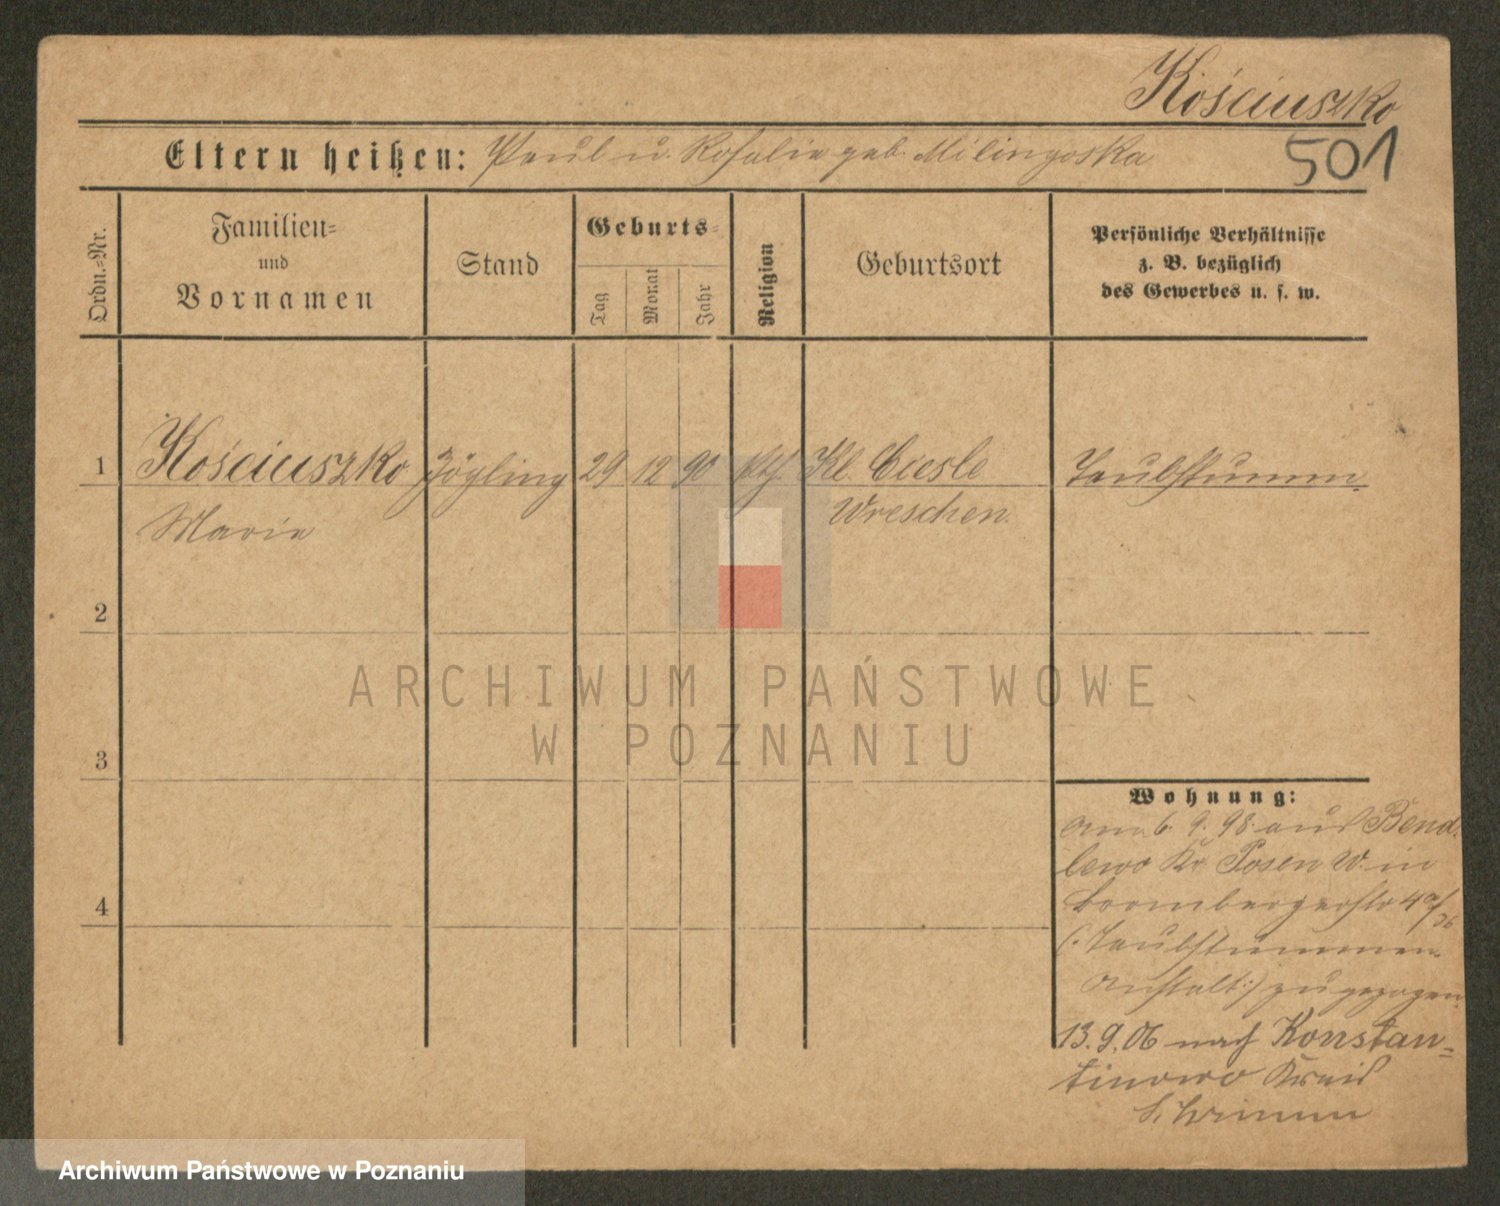 Kościuszko
501
Eltern heißen: Paul u. Rosalie geb. Milingoska
Ordn.-Nr.
Familien-
und
Vornamen
Stand
Geburts-
Tag
Monat
Jahr
Religion
Geburtsort
Persönliche Verhältnisse
z. B. bezüglich
des Gewerbes u. s. w.
1 Kościuszko Zögling 29 12 90 kth. Kl. Ciesle Taubstumm.
Marie Wreschen.
2
3
4
Wohnung:
am 6. 9. 98. aus Bend-
lewo Kr. Posen W. in
Brombergerstr 4a/
(: Taubstummen
Anstalt :) zugezogen
13.9.06 nach Konstan-
tinowo Kreis
Schrimm
ARCHIWUM PAŃSTWOWE
W POZNANIU
Archiwum Państwowe w Poznaniu